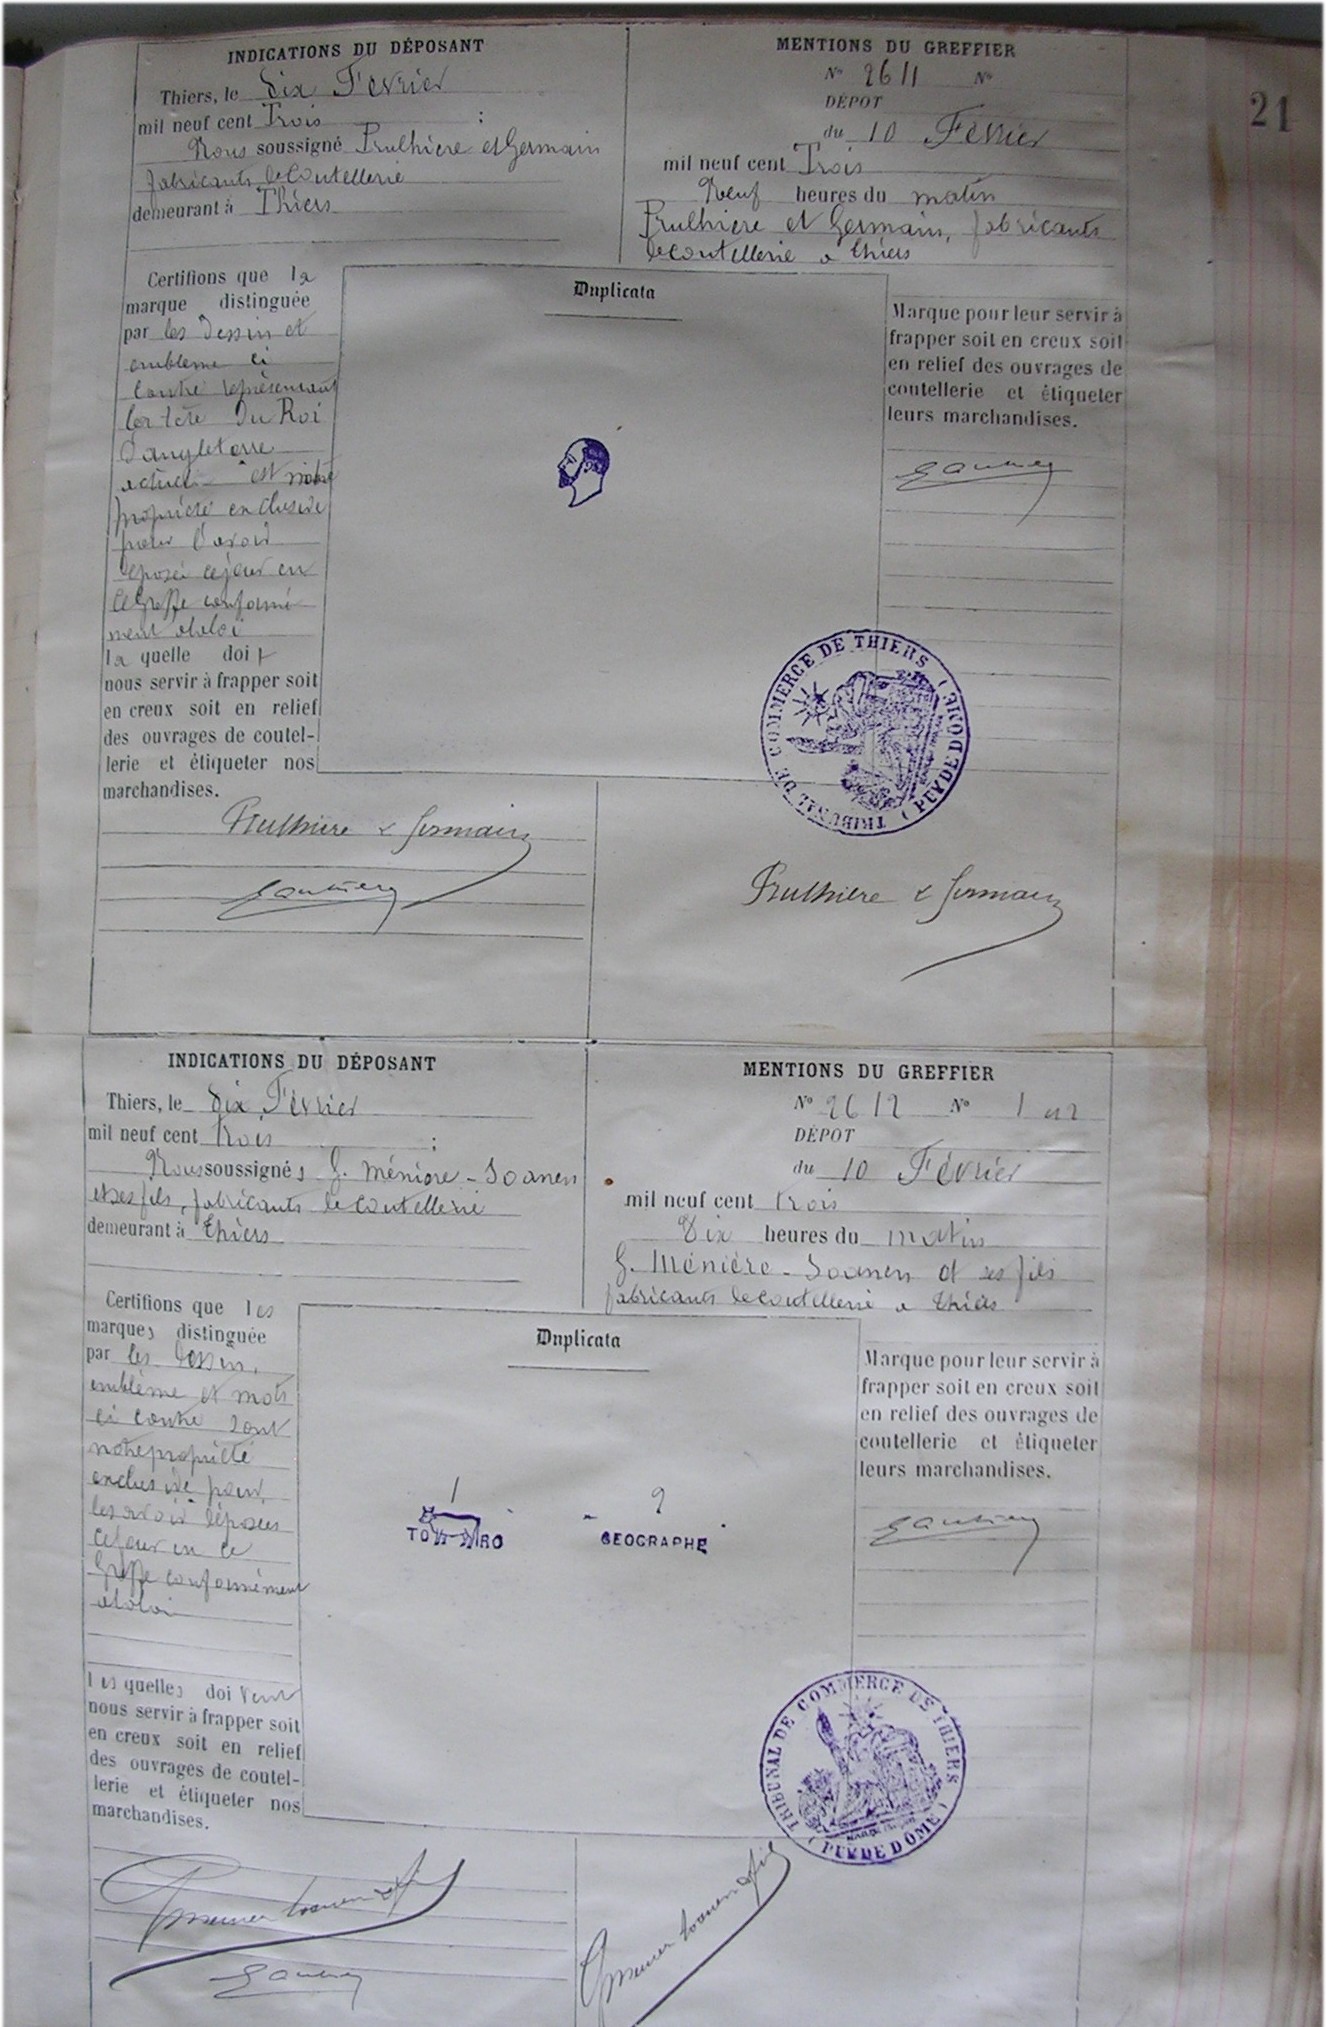 21
INDICATIONS DU DÉPOSANT
Thiers, le dix Février
mil neuf cent Trois ;
Nous soussigné Prulhière et Germain
fabricants de coutellerie
demeurant à Thiers
MENTIONS DU GREFFIER
N° 2611 N°
DÉPOT
du 10 Février
mil neuf cent Trois
Neuf heures du matin
Prulhière et Germain, fabricants
de coutellerie à Thiers
Certifions que la
marque distinguée
par les dessin et
emblème ci
contre représentant
la tête du Roi
d'angleterre
actuel est notre
propriété exclusive
pour l'avoir
déposée ce jour en
ce Greffe conformé
ment à la loi
la quelle doit
nous servir à frapper soit
en creux soit en relief
des ouvrages de coutel-
lerie et étiqueter nos
marchandises.
Duplicata
Marque pour leur servir à
frapper soit en creux soit
en relief des ouvrages de
coutellerie et étiqueter
leurs marchandises.
TRIBUNAL DE COMMERCE DE THIERS
(PUY DE DOME)
Prulhière & Germain
Prulhière & Germain
INDICATIONS DU DÉPOSANT
Thiers, le dix Février
mil neuf cent trois ;
Nous soussignés G. Ménière-Soanen
et ses fils, fabricants de coutellerie
demeurant à Thiers
MENTIONS DU GREFFIER
N° 2612 N° 1 et 2
DÉPOT
du 10 Février
mil neuf cent trois
Dix heures du matin
G. Ménière-Soanen et ses fils
fabricants de coutellerie à Thiers
Certifions que les
marques distinguée
par les dessin,
emblème et mots
ci contre sont
notre propriété
exclusive pour
les avoir déposées
ce jour en ce
Greffe conformément
à la loi
les quelles doivent
nous servir à frapper soit
en creux soit en relief
des ouvrages de coutel-
lerie et étiqueter nos
marchandises.
Duplicata
1 2
TO RO GEOGRAPHE
Marque pour leur servir à
frapper soit en creux soit
en relief des ouvrages de
coutellerie et étiqueter
leurs marchandises.
TRIBUNAL DE COMMERCE DE THIERS
(PUY DE DOME)